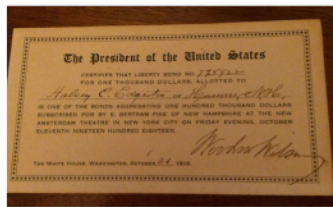 The President of the United States
CERTIFIES THAT LIBERTY BOND NO.
FOR ONE THOUSAND DOLLARS, ALLOTTED TO
Halsey C. Edgerton
IS ONE OF THE BONDS AGGREGATING ONE HUNDRED THOUSAND DOLLARS
SUBSCRIBED FOR BY E. BERTRAM PIKE OF NEW HAMPSHIRE AT THE NEW
AMSTERDAM THEATRE IN NEW YORK CITY ON FRIDAY EVENING, OCTOBER
ELEVENTH, NINETEEN HUNDRED EIGHTEEN.
Woodrow Wilson
THE WHITE HOUSE, WASHINGTON, OCTOBER 1918.